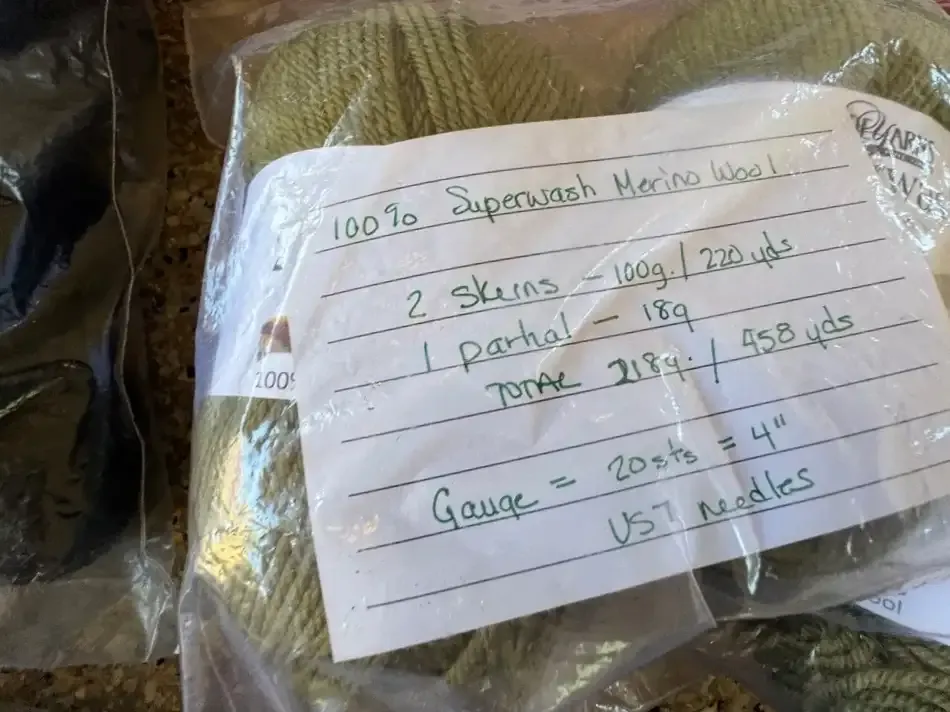 100% Superwash Merino Wool
2 Skeins - 100g. / 220 yds
1 partial - 18g
TOTAL 218g. / 458 yds
Gauge = 20 sts = 4"
US 7 needles
YARNS